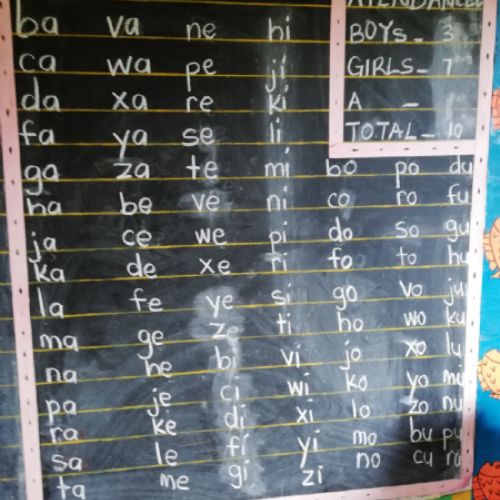 ATTENDANCE
ba va ne hi BOYS - 3
ca wa pe ji GIRLS - 7
da xa re ki A -
fa ya se li TOTAL - 10
ga za te mi bo po du
ha be ve ni co ro fu
ja ce we pi do so gu
ka de xe ri fo to hu
la fe ye si go vo ju
ma ge ze ti ho wo ku
na he bi vi jo xo lu
pa je ci wi ko yo mu
ra ke di xi lo zo nu
sa le fi yi mo bu pu
ta me gi zi no cu ru